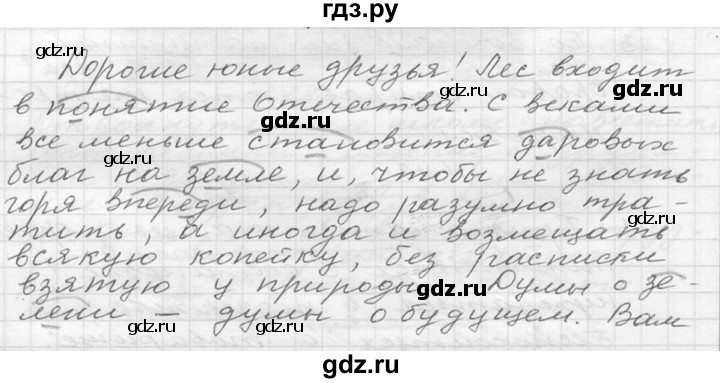 гдз.ру
Дорогие юные друзья! Лес входит
в понятие Отечества. С веками
все меньше становится даровых
благ на земле, и, чтобы не знать
горя впереди, надо разумно тра-
тить, а иногда и возмещать
всякую копейку, без расписки
взятую у природы. Думы о зе-
лени – думы о будущем. Вам
gdz.ru
gdz.ru
gdz.ru
gdz.ru
gdz.ru
gdz.ru
gdz.ru
gdz.ru
gdz.ru
gdz.ru
gdz.ru
gdz.ru
gdz.ru